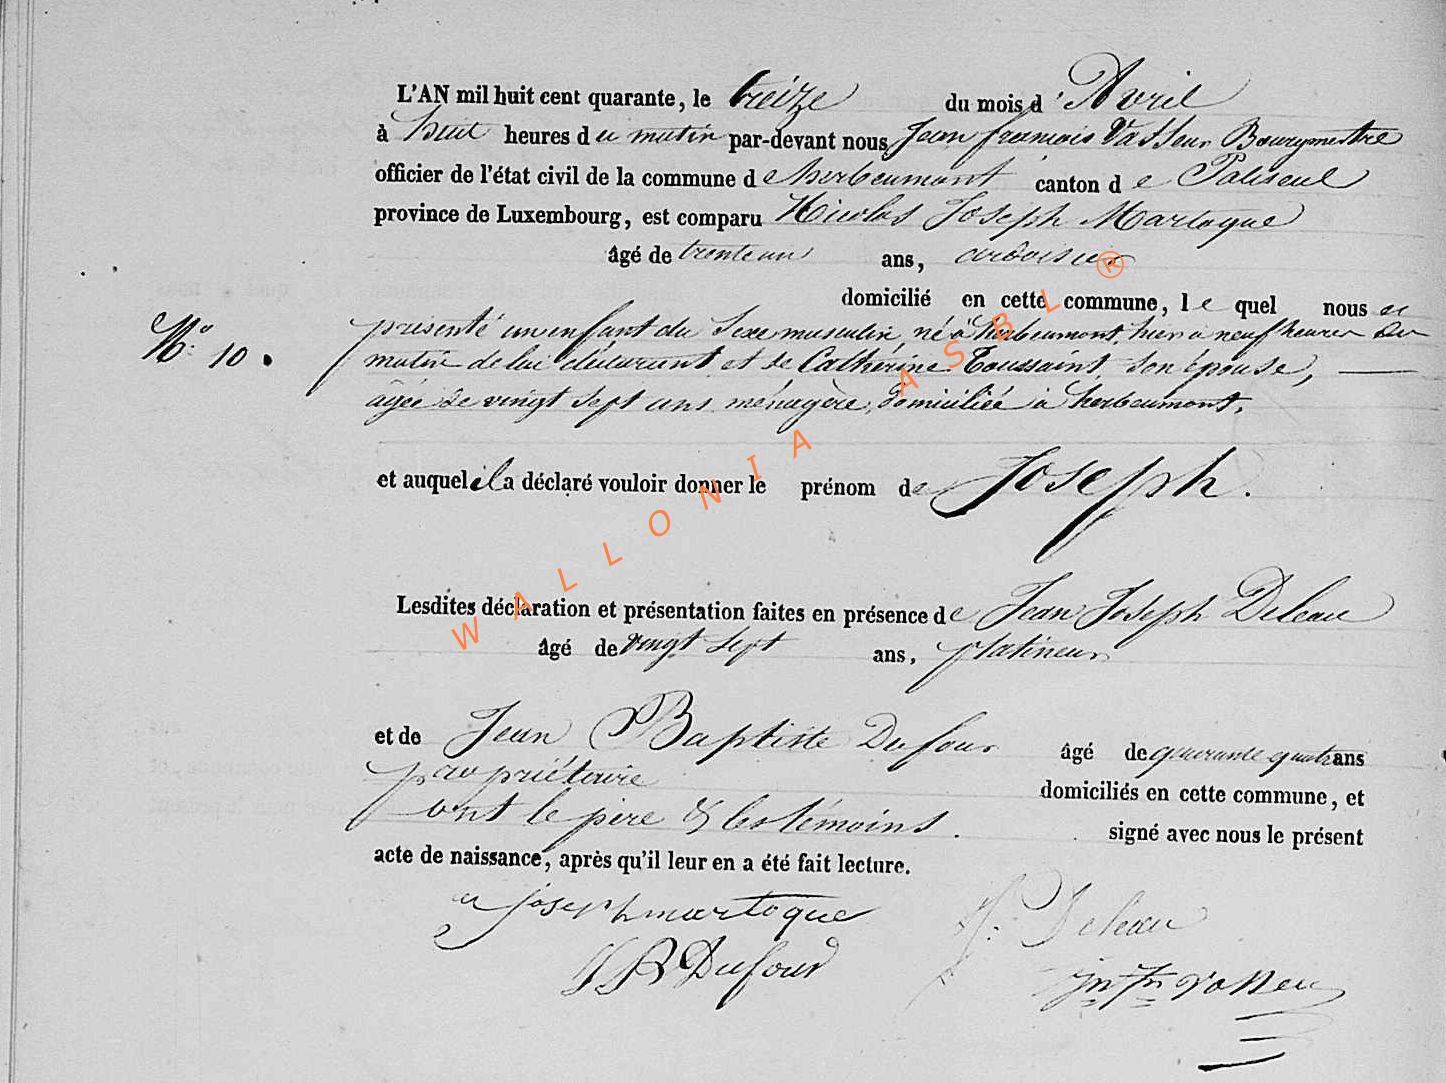 L'AN mil huit cent quarante, le treize du mois d'Avril
à huit heures du matin par-devant nous Jean françois Vasseur Bourgmestre
officier de l'état civil de la commune de herbeumont canton de Paliseul
province de Luxembourg, est comparu Nicolas Joseph Martoque
âgé de trente un ans, ardoisier
domicilié en cette commune, lequel nous a
N.º 10.
présenté un enfant du Sexe masculin, né à herbeumont, hier à neuf heures du
matin de lui déclarant et de Catherine Toussaint son épouse,
agée de vingt sept ans ménagère, domiciliée à herbeumont.
et auquel il a déclaré vouloir donner le prénom de Joseph.
Lesdites déclaration et présentation faites en présence de Jean Joseph Deleau
âgé de vingt sept ans, platineur
et de Jean Baptiste Dufour âgé de quarante quatre ans
propriétaire domiciliés en cette commune, et
ont le père & les témoins. signé avec nous le présent
acte de naissance, après qu'il leur en a été fait lecture.
n joseph martoque
J. Deleau
J B Dufour
Jn fn vasseur
WALLONIA ASBL ®